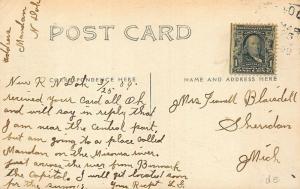 address
Mandan
N Dak
POST CARD
CORRESPONDENCE HERE
NAME AND ADDRESS HERE
1
New R N Dak
received your Card all Ok
and will say in reply that I
am near the Central part,
but am going to a place called
Mandan on the River
just across the river from Bismarck
the Capital. I will get located
for the Your
Mrs Blaisdell
Sheridan
Mich